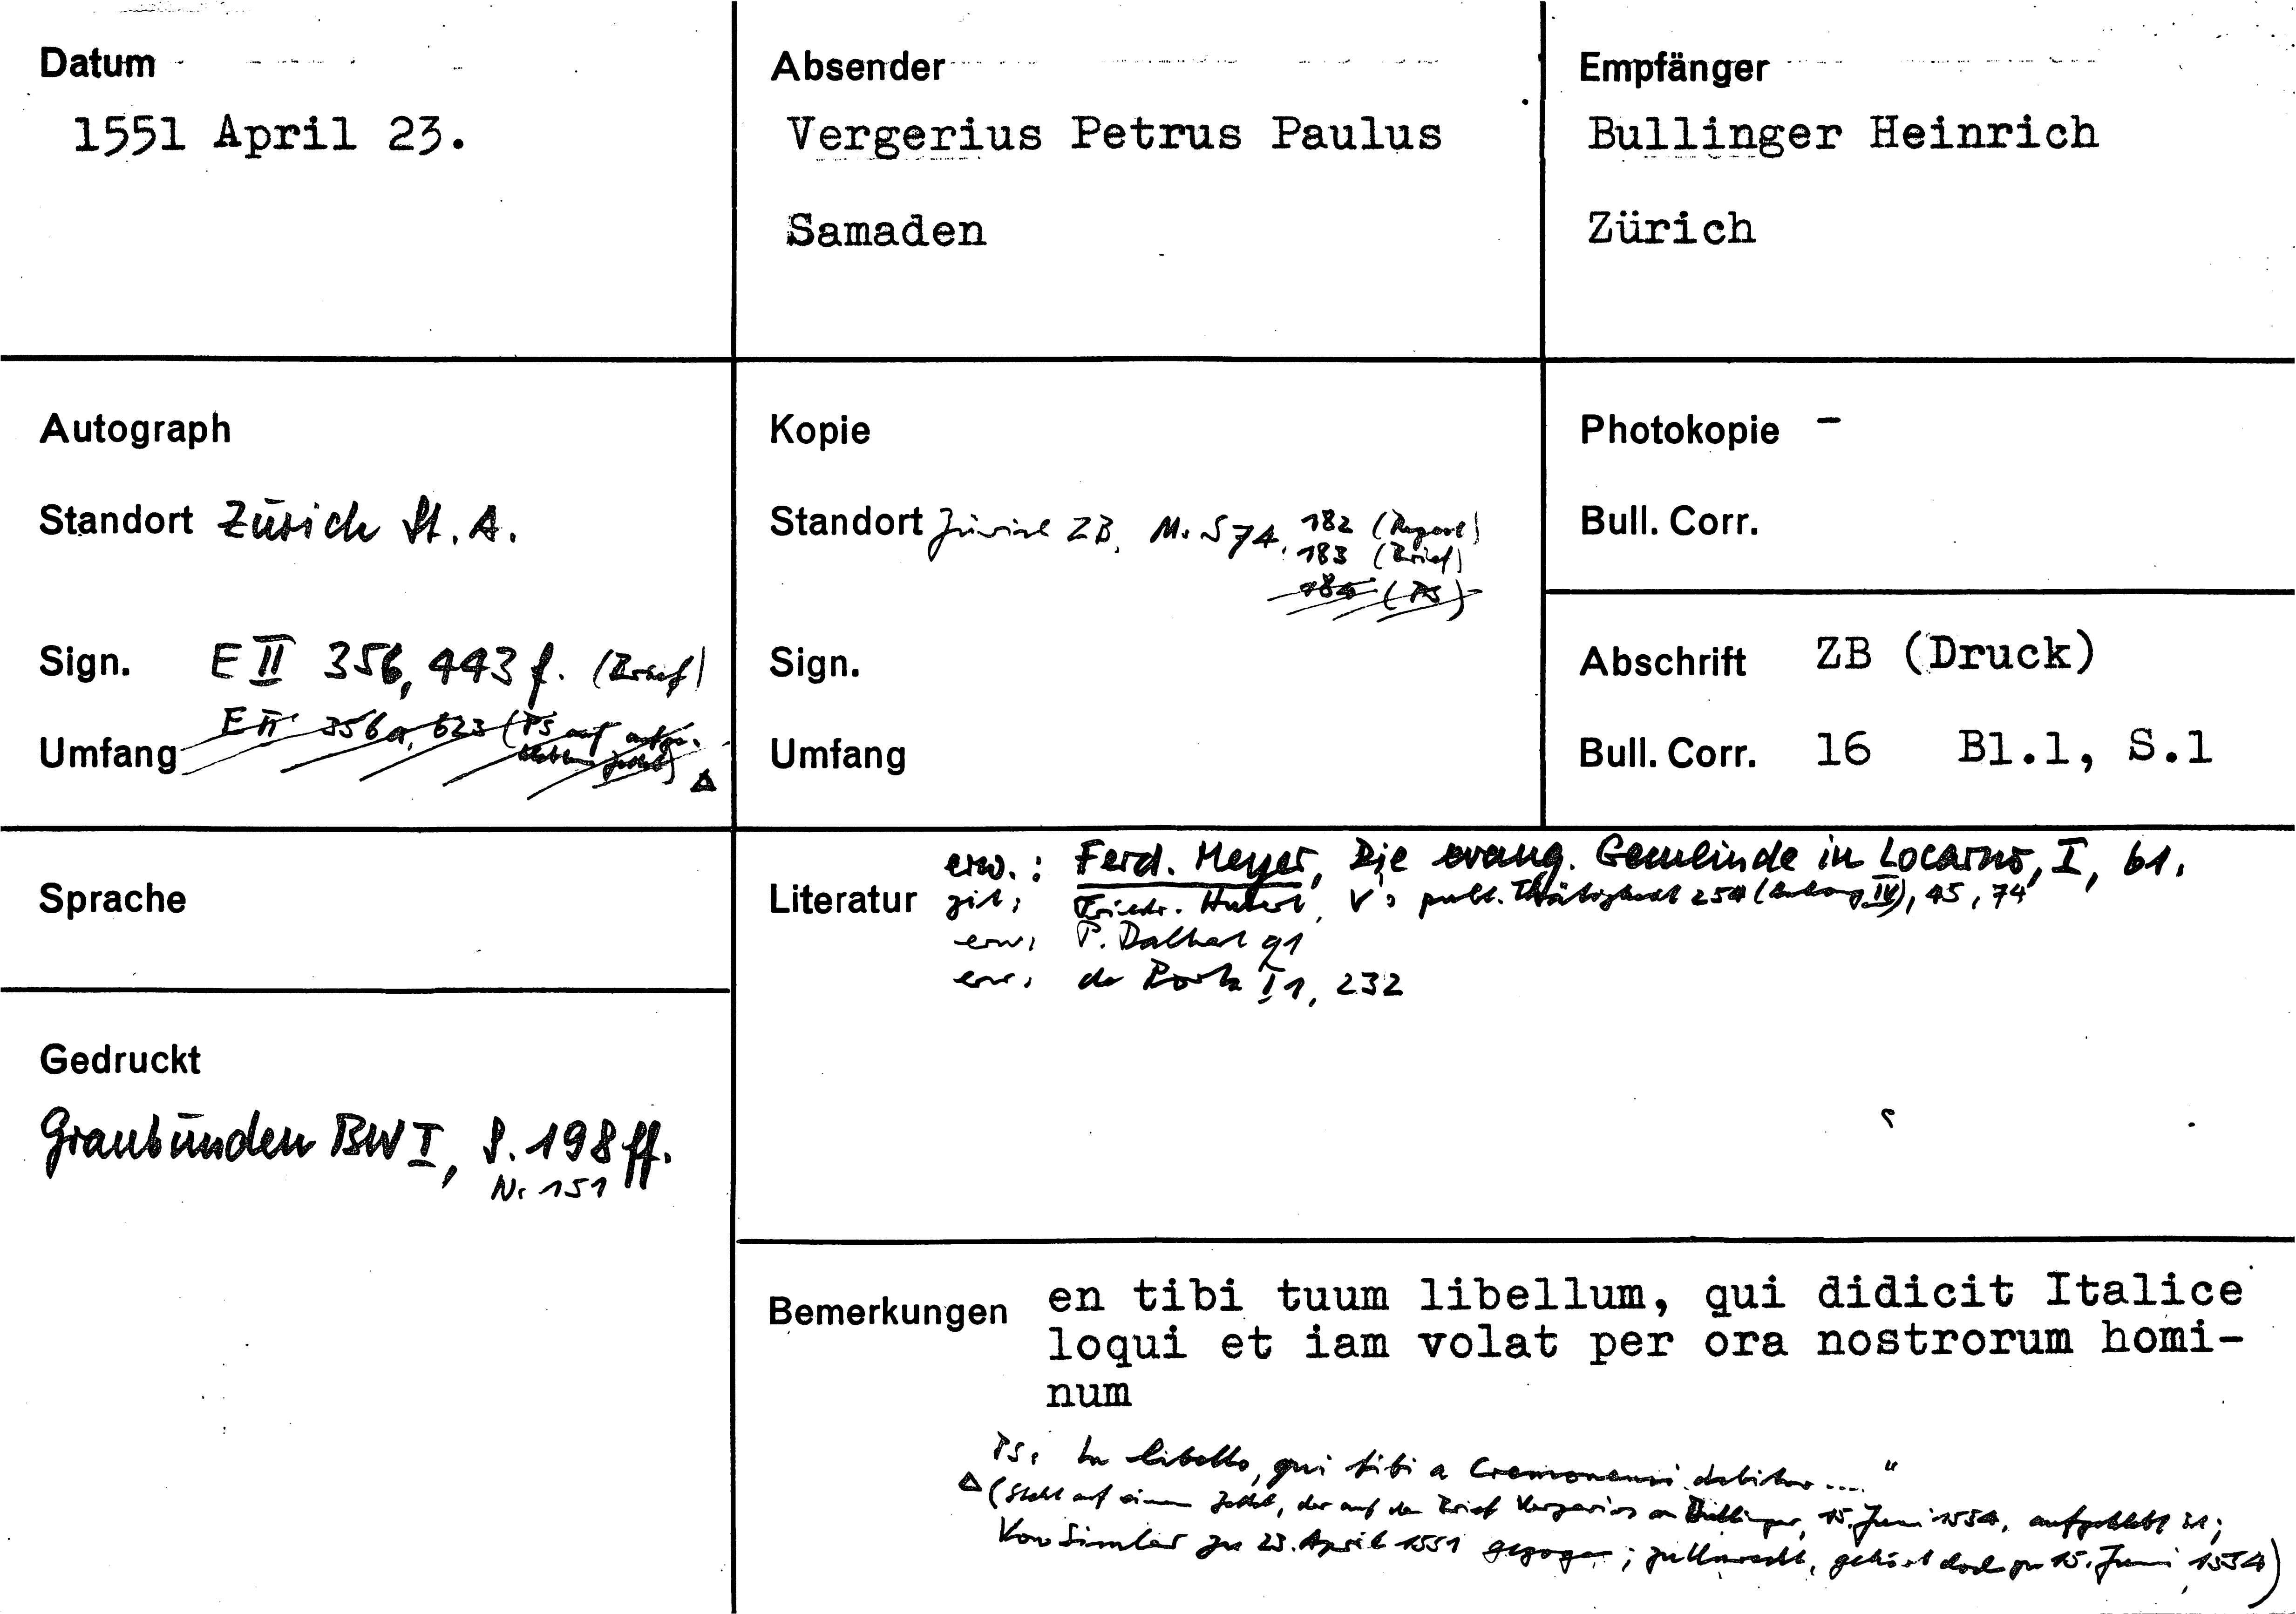 Datum
1551 April 23.
Absender
Vergerius Petrus Paulus
Samaden
Empfänger
Bullinger Heinrich
Zürich
Autograph
Standort Zürich St. A.
Sign. E II 356, 443 f. (Brief)
E II 356a, 623 (PS auf aufge-
klebtem Zettel) Δ
Umfang
Kopie
Standort Zürich ZB, Ms S 74, 182 (Regest)
183 (Brief)
184 (PS)
Sign.
Umfang
Photokopie -
Bull. Corr.
Abschrift ZB (Druck)
Bull. Corr. 16 Bl.1, S.1
Sprache
Gedruckt
Graubünden BW I, S. 198 ff.
Nr 151
Literatur
erw.: Ferd. Meyer, Die evang. Gemeinde in Locarno, I, 61.
zit: Friedr. Hubert, V's publ. Thätigkeit 254 (Anhang IV), 45, 74
erw: P. Dalbert 91
erw: de Porta I 1, 232
Bemerkungen
en tibi tuum libellum, qui didicit Italice
loqui et iam volat per ora nostrorum homi-
num
PS: In libello, qui tibi a Cremonensi dabitur ...."
Δ (Steht auf einem Zettel, der auf den Brief Vergerios an Bullinger, 15. Juni 1554, aufgeklebt ist;
Von Simler zu 23. April 1551 gezogen; zu Unrecht, gehört doch zu 15. Juni 1554)